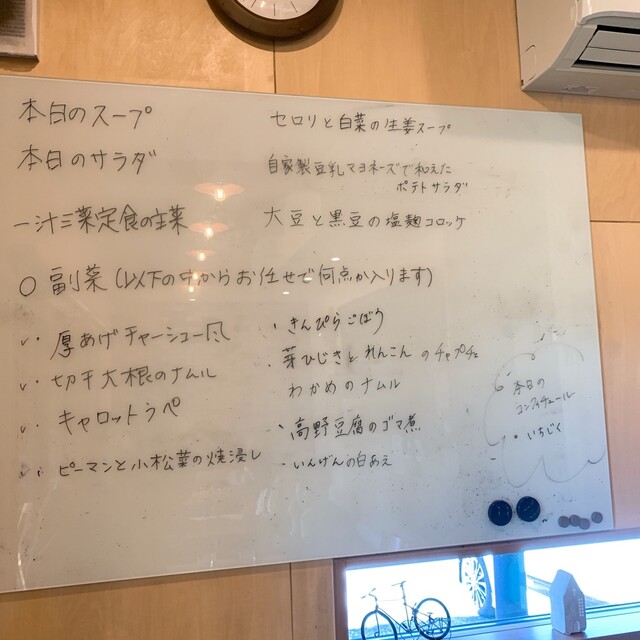 本日のスープ
セロリと白菜の生姜スープ
本日のサラダ
自家製豆乳マヨネーズで和えた
ポテトサラダ
一汁三菜定食の主菜
大豆と黒豆の塩麹コロッケ
○ 副菜(以下の中からお任せで何点か入ります)
・厚あげチャーシュー風
・切干大根のナムル
・キャロットラペ
・ピーマンと小松菜の焼浸し
・きんぴらごぼう
・芽ひじきとれんこんのチャプチェ
わかめのナムル
・高野豆腐のゴマ煮
・いんげんの白あえ
本日の
コンフィチュール
・いちじく